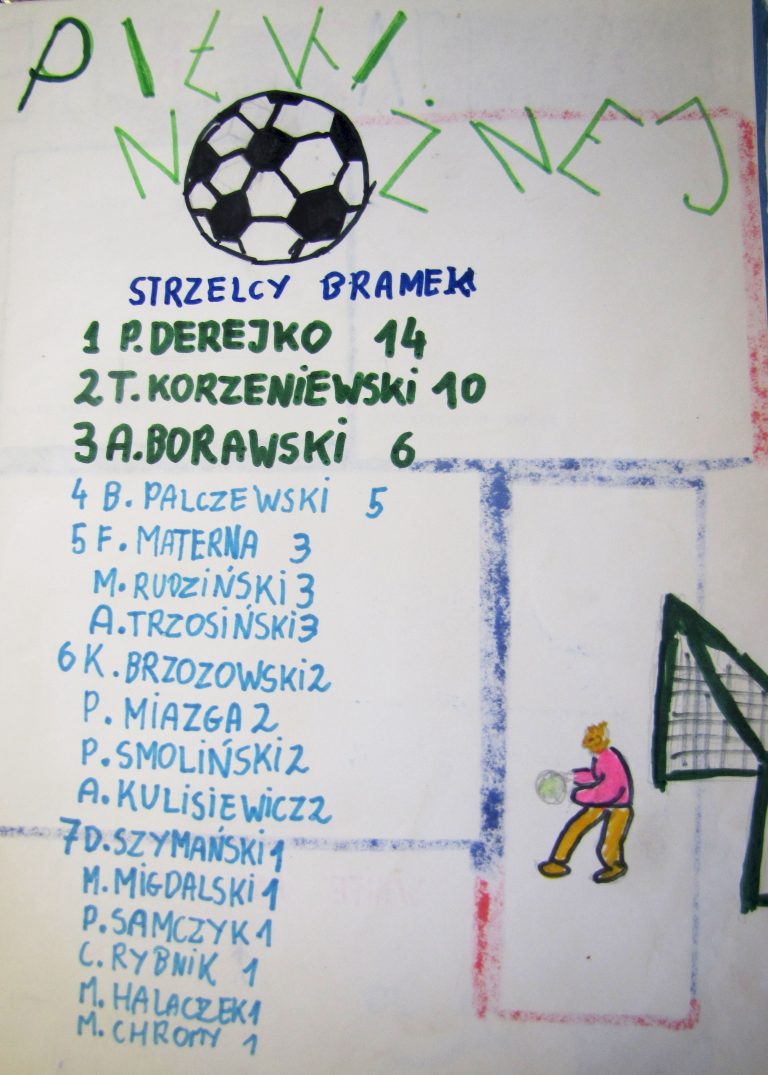 PIŁKI
NOŻNEJ
STRZELCY BRAMEK
1 P. DEREJKO 14
2 T. KORZENIEWSKI 10
3 A. BORAWSKI 6
4 B. PALCZEWSKI 5
5 F. MATERNA 3
M. RUDZIŃSKI 3
A. TRZOSIŃSKI 3
6 K. BRZOZOWSKI 2
P. MIAZGA 2
P. SMOLIŃSKI 2
A. KULISIEWICZ 2
7 D. SZYMAŃSKI 1
M. MIGDALSKI 1
P. SAMCZYK 1
C. RYBNIK 1
M. HALACZEK 1
M. CHROMY 1